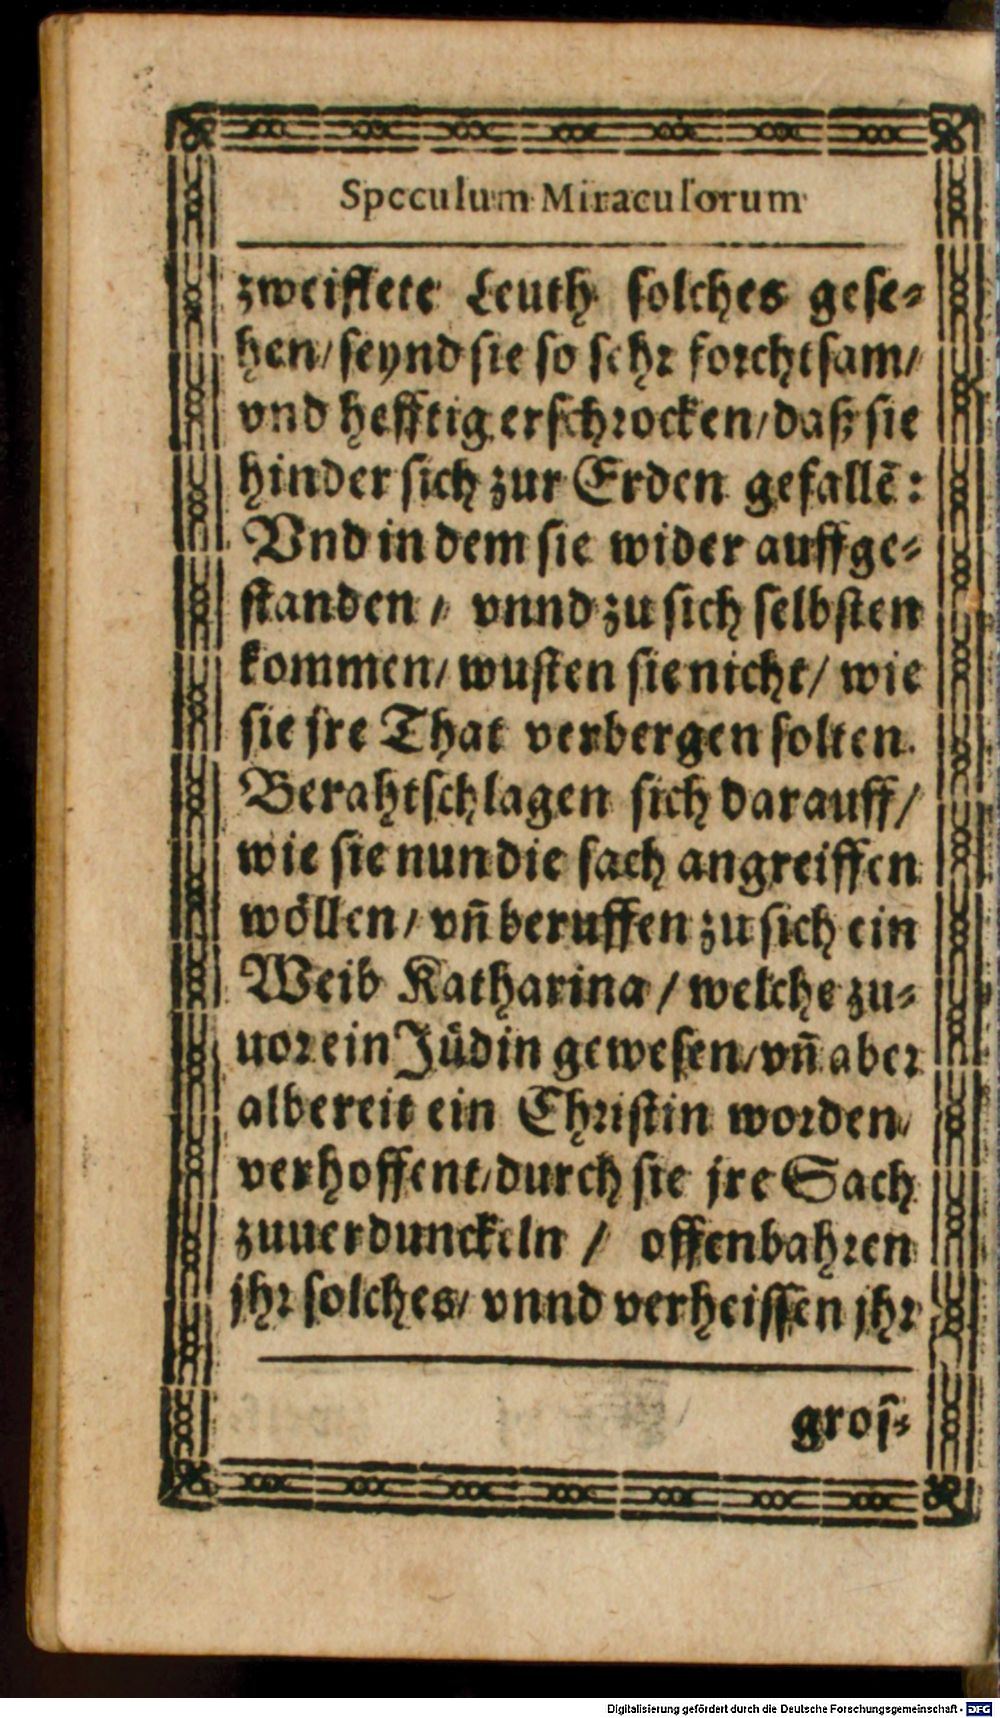 Speculum Miraculorum
zweiflete Leuth solches gese-
hen/ seynd sie so sehr forchtsam/
vnd hefftig erschrocken/ daß sie
hinder sich zur Erden gefallẽ:
Vnd in dem sie wider auffge-
standen / vnnd zu sich selbsten
kommen/ wusten sie nicht/ wie
sie jre That verbergen solten.
Berahtschlagen sich darauff/
wie sie nun die sach angreiffen
wöllen/ vñ beruffen zu sich ein
Weib Katharina / welche zu-
uor ein Jüdin gewesen/ vñ aber
albereit ein Christin worden/
verhoffent/ durch sie jre Sach
zuuerdunckeln / offenbahren
jhr solches/ vnnd verheissen jhr
gros-
Digitalisierung gefördert durch die Deutsche Forschungsgemeinschaft - DFG